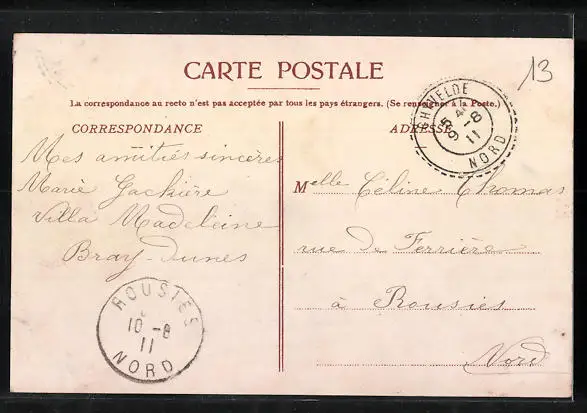 CARTE POSTALE
La correspondance au recto n'est pas acceptée par tous les pays étrangers. (Se renseigner à la Poste.)
CORRESPONDANCE
Mes amitiés sincères
Marie Gackière
Villa Madeleine
Bray-Dunes
ROUSIES
10 -8
11
NORD
13
GHYVELDE
9 -8
11
NORD
ADRESSE
Melle Céline Thomas
rue de Ferrière
à Rousies
Nord